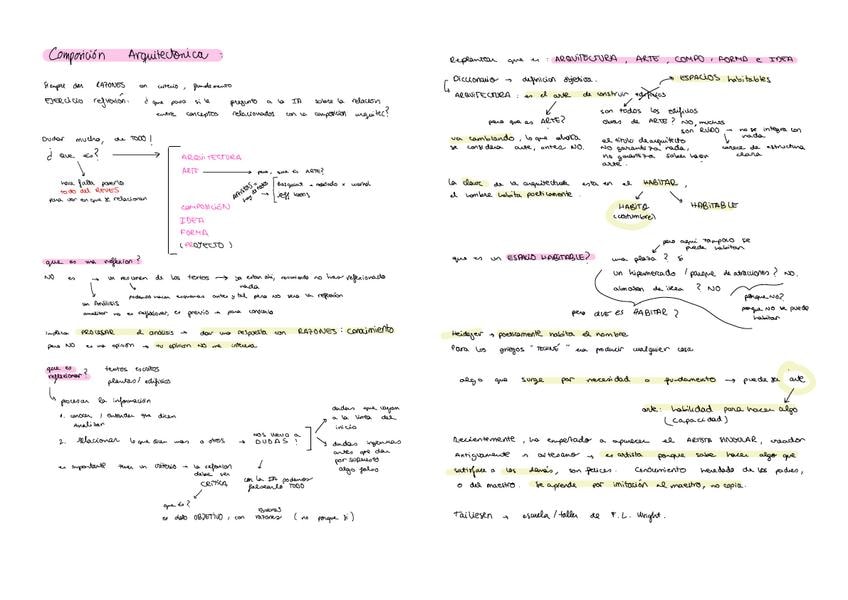 Composición Arquitectónica :
Siempre dar RAZONES con criterio, fundamento
EJERCICIO reflexión: ¿ que pasa si le pregunto a la IA sobre la relación
entre conceptos relacionados con la composición arquitec?
Dudar mucho, de TODO!
¿ que es?
hace falta ponerlo
todo del REVES
para ver en que se relacionan
ARQUITECTURA
ARTE → pero, que es ARTE?
COMPOSICIÓN
IDEA
FORMA
(PROYECTO)
que es una reflexion?
NO es → un resumen de los textos → ya estan ahi, resumiendo no has reflexionado
nada
un Análisis
podemos hacer esquemas antes y tal pero no sera la reflexion
analizar no es reflexionar, es previo
Implica PROCESAR el análisis → dar una respuesta con RAZONES : conocimiento
pero NO es una opinion → tu opinion NO me interesa
que es
reflexionar?
textos escritos
plantas / edificios
procesar la información
1. conocer / entender que dicen
analizar
2. Relacionar lo que dicen unos a otros → nos lleva a
DUDAS !
dudas que vayan
a la contra del
inicio
dudas ingenuas
antes que dar
por supuesto
algo falso
es importante tener un criterio → la reflexion
debe ser
CRÍTICA
con la IA podemos
falsearlo TODO
que es?
es dato OBJETIVO, con buenas
razones ( no porque si )
Replantear que es : ARQUITECTURA , ARTE , COMPO , FORMA e IDEA
Diccionario → definicion objetiva.
ESPACIOS habitables
ARQUITECTURA : es el arte de construir edificios
pero que es ARTE?
son todos los edificios
obras de ARTE ? NO, muchos
son RUIDO → no se integra con
nada
va cambiando, lo que ahora
se considera arte, antes NO.
el título de arquitecto
NO garantiza nada,
no garantiza saber hacer
arte.
carece de estructura
clara
la clave de la arquitectura esta en el HABITAR,
el hombre habita poeticamente.
HABITA
(costumbre)
HABITABLE
pero aqui tampoco se
puede habitar
que es un ESPACIO HABITABLE?
una plaza ? Si
un hipermercado / parque de atracciones ? NO.
almacen de ikea ? NO
porque NO?
porque NO se puede
habitar
pero QUE ES HABITAR ?
Heidegger → poeticamente habita el hombre
Para los griegos "TECNÉ" era producir cualquier cosa
algo que surge por necesidad o fundamento → puede ser arte
arte: habilidad para hacer algo
(capacidad)
Recientemente, ha empezado a aparecer el ARTISTA SINGULAR, creador
Antiguamente → artesano → es artista porque sabe hacer algo que
satisface a los demás, son felices. Conocimiento heredado de los padres,
o del maestro. Se aprende por imitación al maestro, no copia.
Tailiesen → escuela / taller de F. L. Wright.